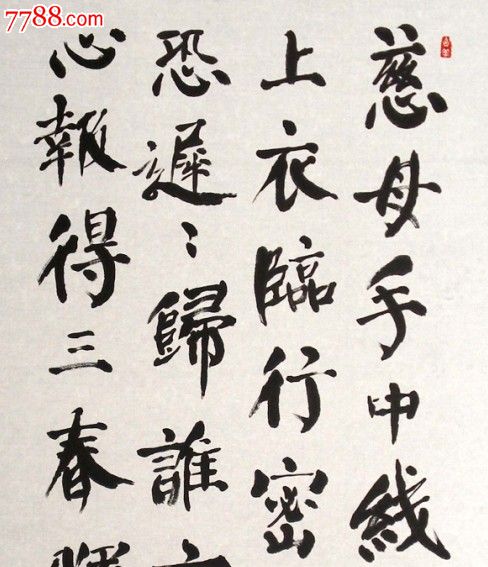 7788.com
慈母手中线
上衣臨行密
恐遲:歸誰
心報得三春